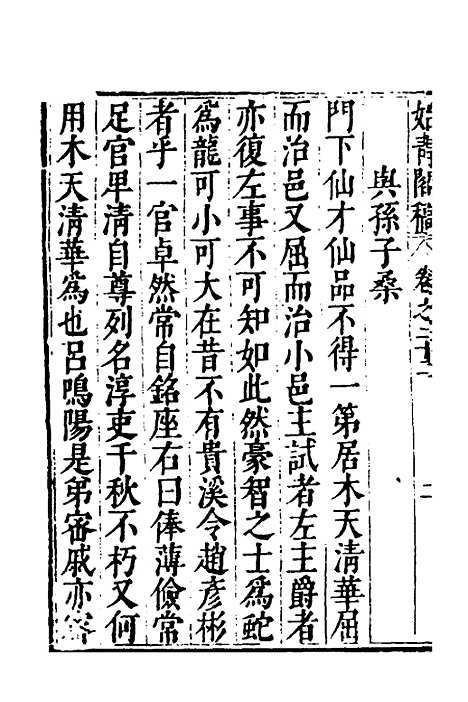 始青閣稿 卷之二十一 二
與孫子桑
門下仙才仙品不得一第居木天清華屈
而治邑又屈而治小邑主試者左主爵者
亦復左事不可知如此然豪智之士爲蛇
爲龍可小可大在昔不有貴溪令趙彥彬
者乎一官卓然常自銘座右曰俸薄儉常
足官卑清自尊列名淳吏千秋不朽又何
用木天清華爲也呂鳴陽是弟密戚亦密